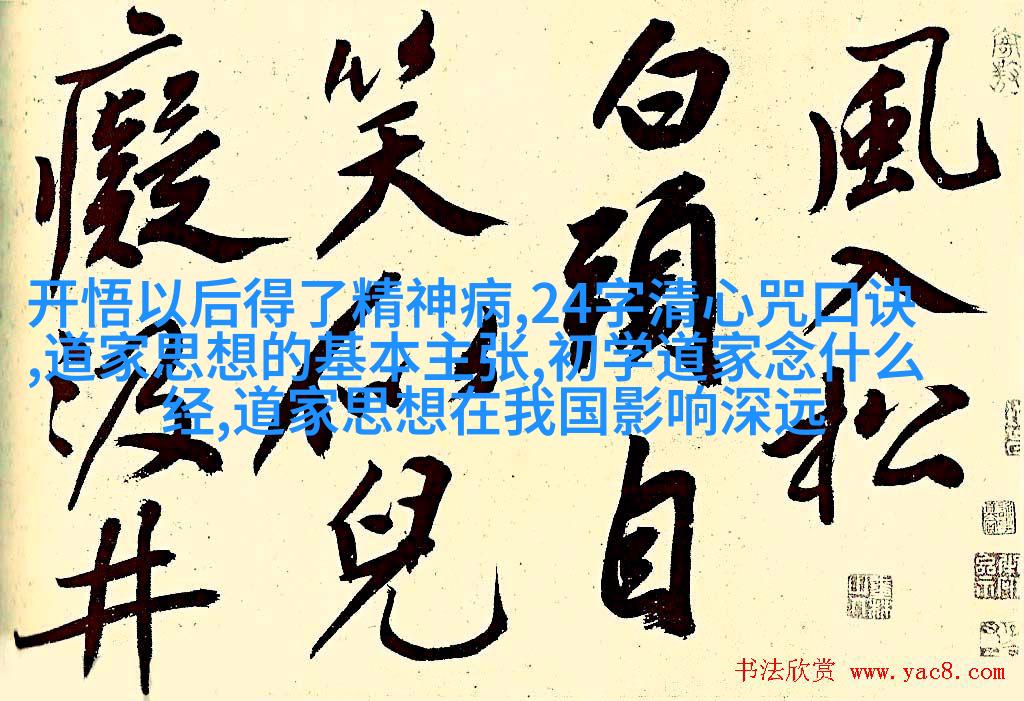 風入松
白頭自
笑兒
癡汲井
开悟以后得了精神病,24字清心咒口诀
,道家思想的基本主张,初学道家念什么
经,道家思想在我国影响深远
书法欣赏 www.yac8.com